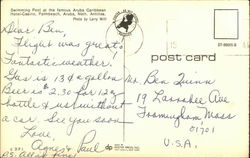 Swimming Pool at the famous Aruba Caribbean
Hotel-Casino, Palmbeach, Aruba, Neth. Antilles.
Photo by Larry Witt
post card
Dear Ben,
Flight was great,
Fantastic weather.
Gas is 13¢ a gallon
Beer is $2.30 for 12 oz
bottle & us without
a car. See you soon
Love,
Agnes & Paul
P.S. All at
Mr. Ben Quinn
19 Ave
Framingham, Mass
01701
U.S.A.